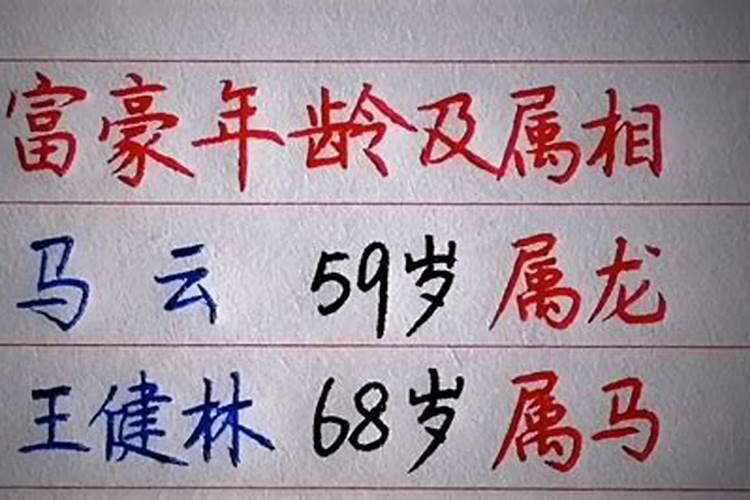 富豪年龄及属相
马云 59岁 属龙
王健林 68岁 属马